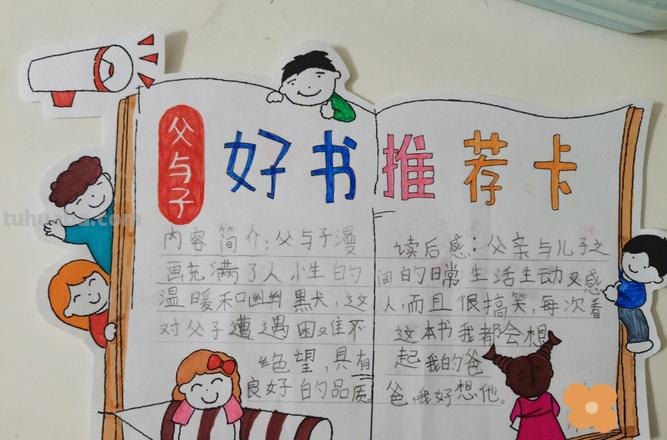 父与子
好书推荐卡
内容简介：父与子漫
画充满了人小生的
温暖和幽幽黑犬，这
对父子遭遇困难不
绝望，具有
良好的品质。
读后感：父亲与儿子之
间的日常生活生动又感
人，而且很搞笑，每次看
这本书我都会想
起我的爸
爸，我好想他。
tuhuaba.com